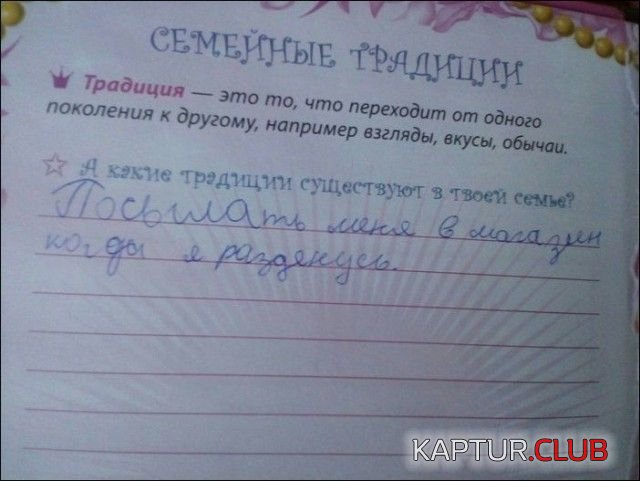 СЕМЕЙНЫЕ ТРАДИЦИИ
Традиция — это то, что переходит от одного
поколения к другому, например взгляды, вкусы, обычаи.
А какие традиции существуют в твоей семье?
Посылать меня в магазин
когды я разденусь.
KAPTUR.CLUB